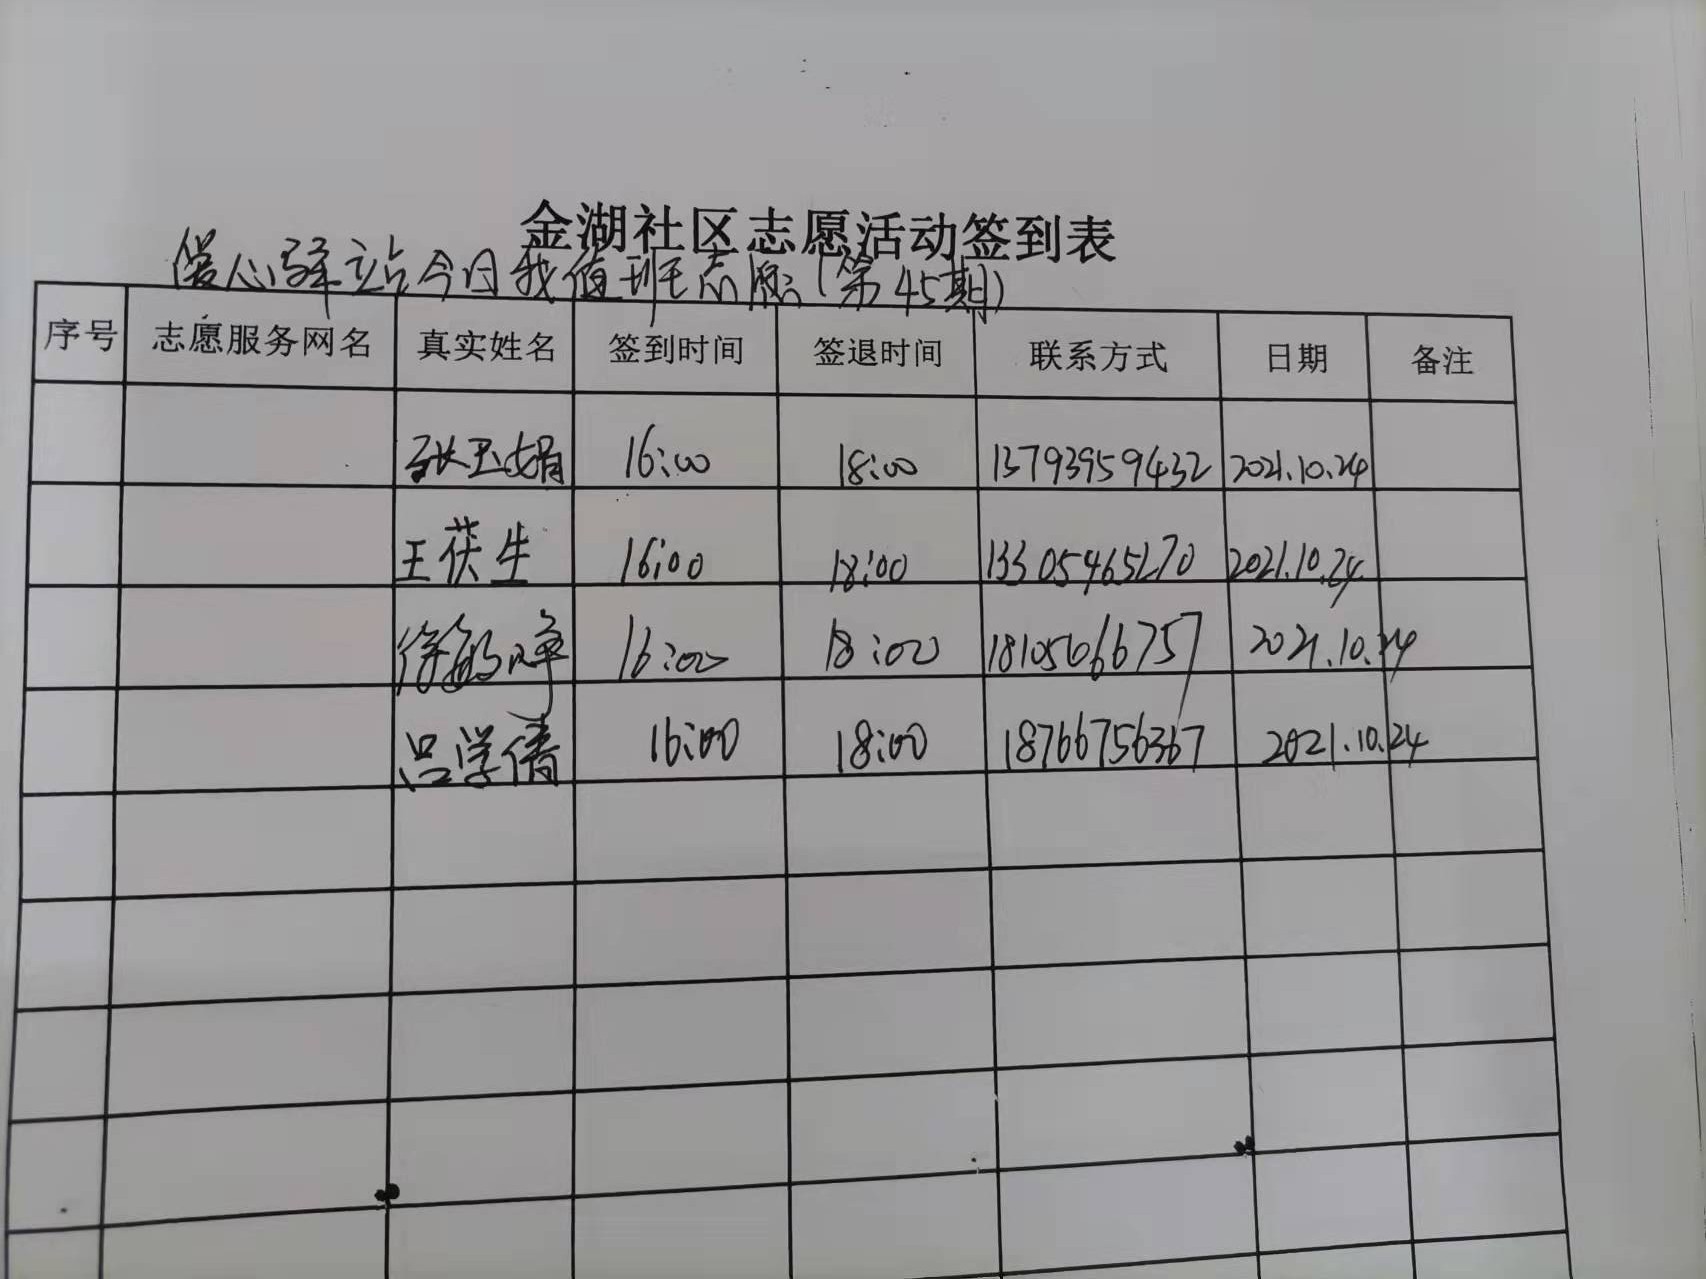 金湖社区志愿活动签到表
暖心驿站今日我值班志愿(第45期)
序号 志愿服务网名 真实姓名 签到时间 签退时间 联系方式 日期 备注
张玉娟 16:00 18:00 13793959432 2021.10.24
王茯生 16:00 18:00 13305465270 2021.10.24
徐 16:00 18:00 18105066757 2021.10.24
吕学倩 16:00 18:00 18766756367 2021.10.24